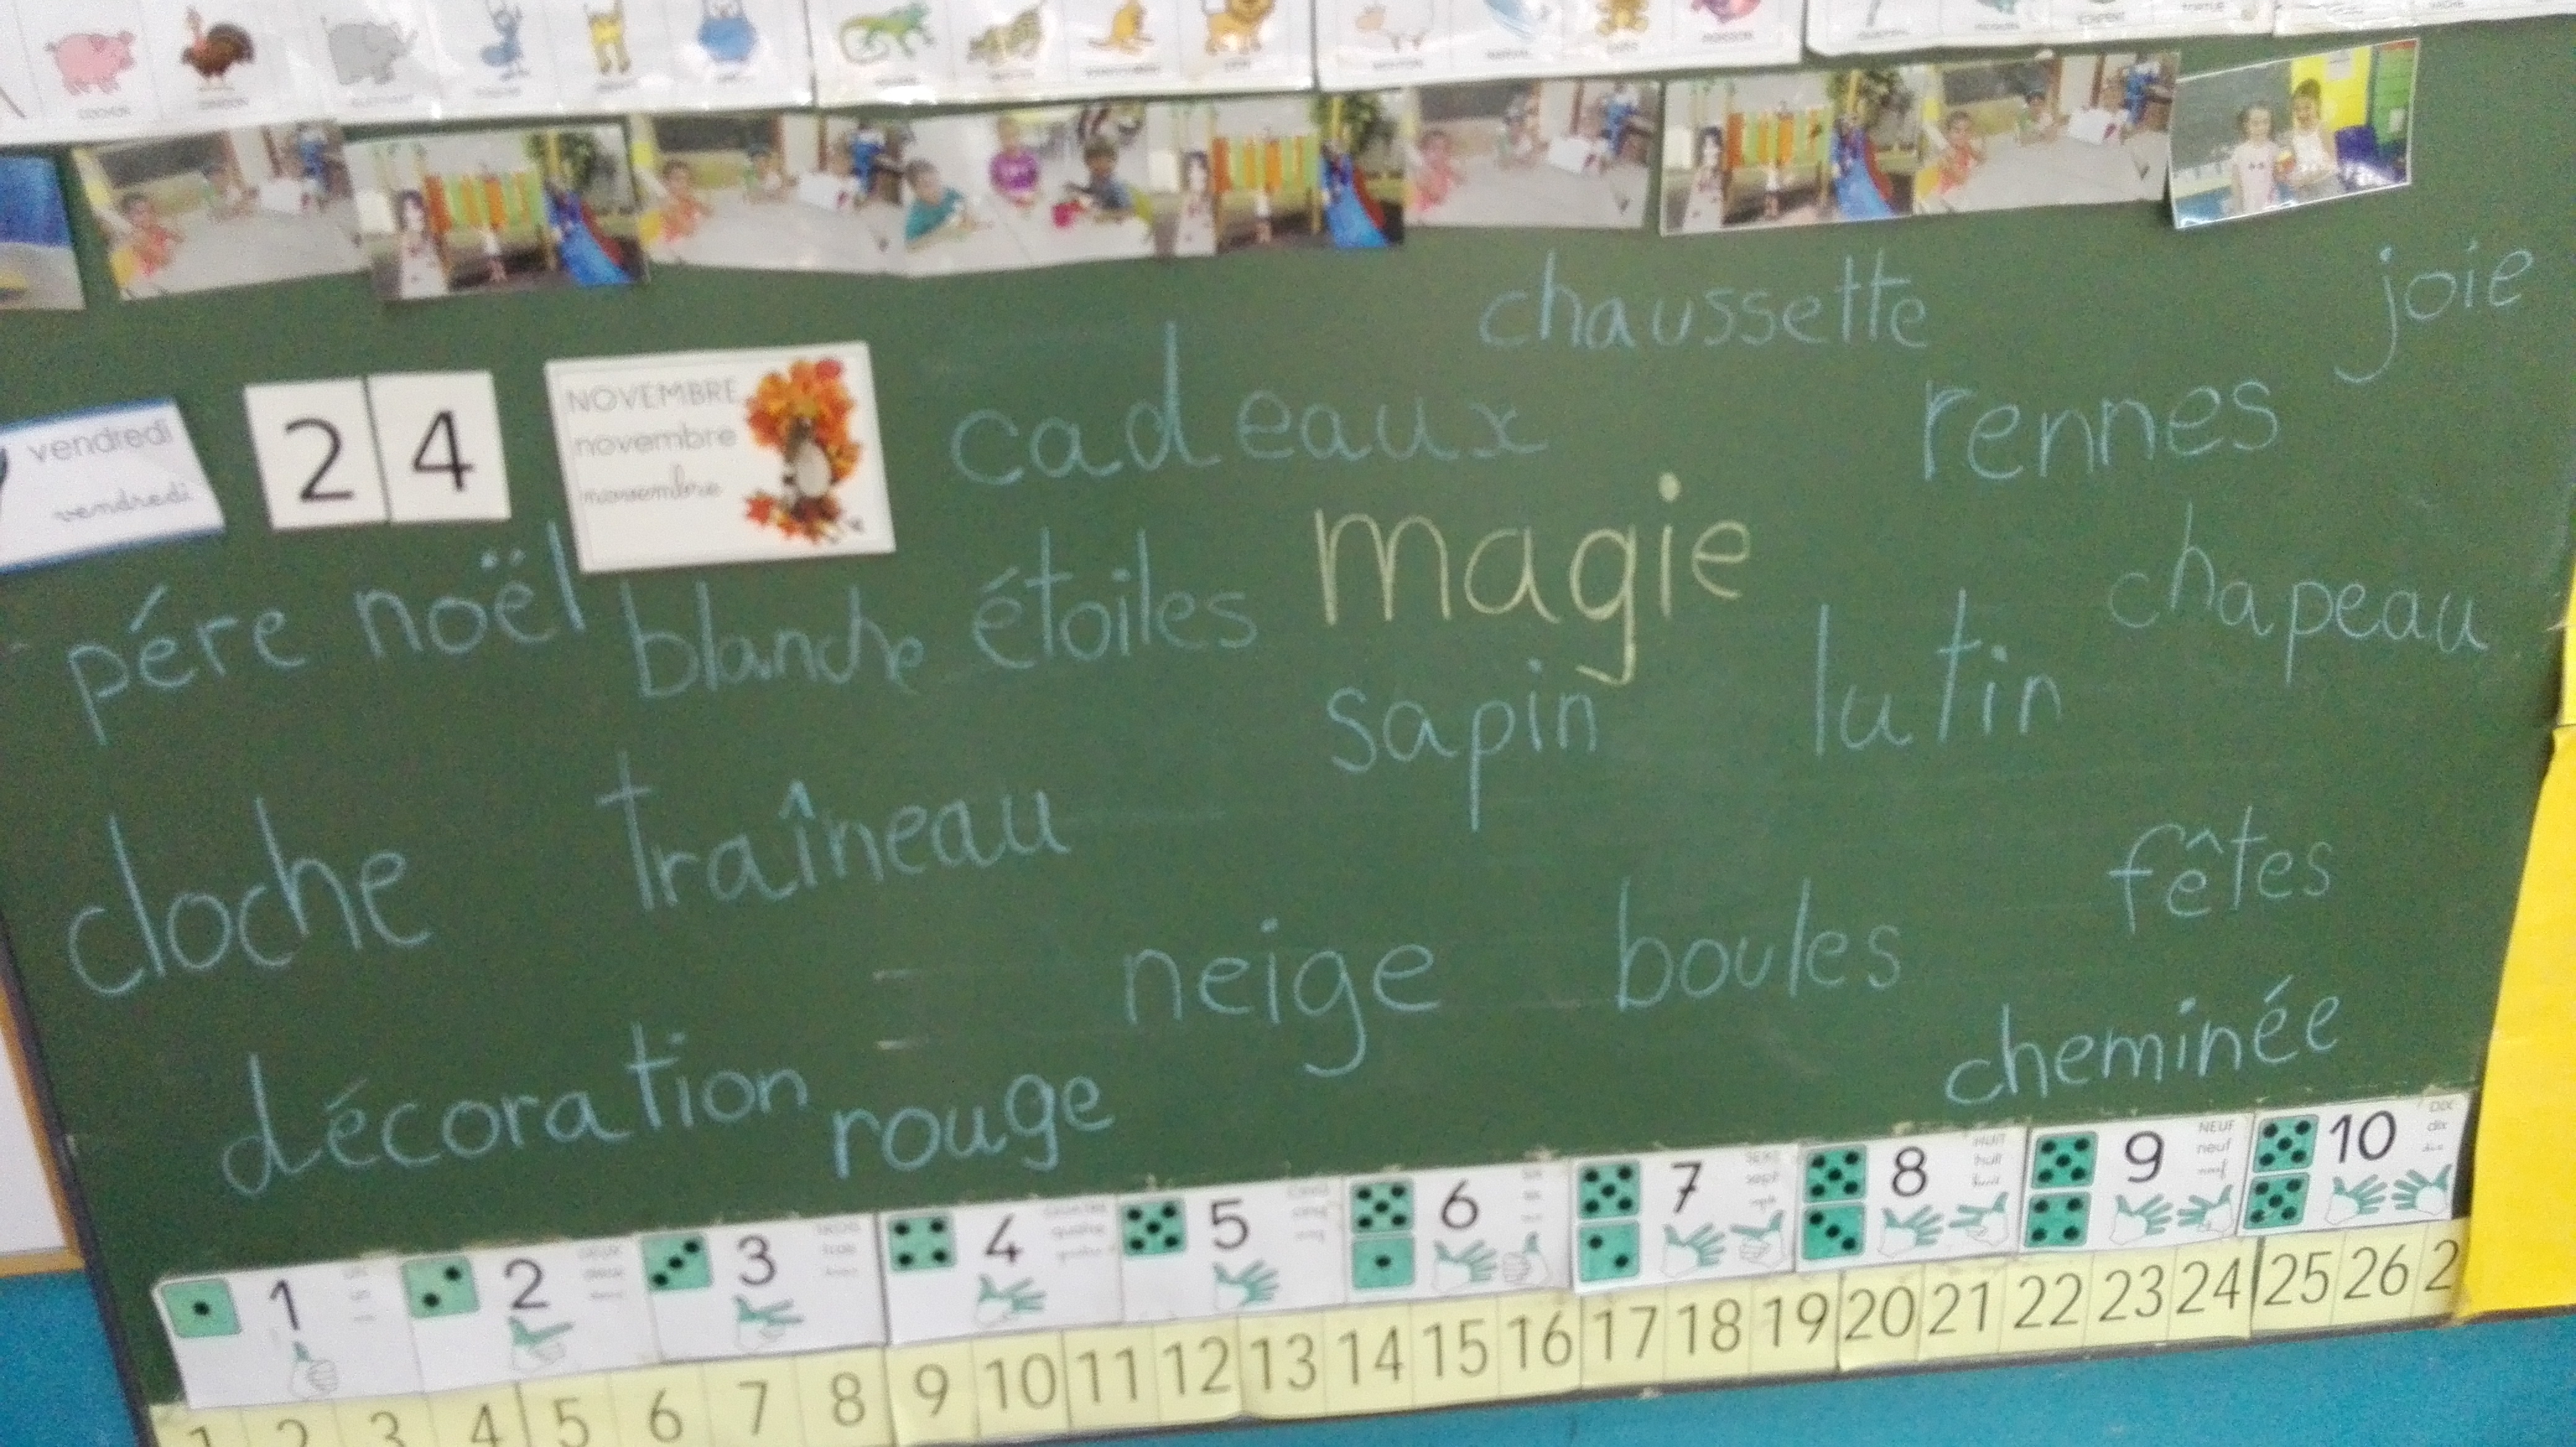 COCHON
DINDON
ELEPHANT
chaussette
joie
cadeaux
rennes
vendredi
vendredi
2 4
NOVEMBRE
novembre
novembre
magie
pére noël
blanche
étoiles
chapeau
sapin
lutin
traîneau
cloche
fêtes
neige
boules
cheminée
décoration
rouge
1 2 3 4 5 6 7 8 9 10
HUIT
huit
NEUF
neuf
neuf
DIX
dix
dix
1 2 3 4 5 6 7 8 9 10 11 12 13 14 15 16 17 18 19 20 21 22 23 24 25 26 2